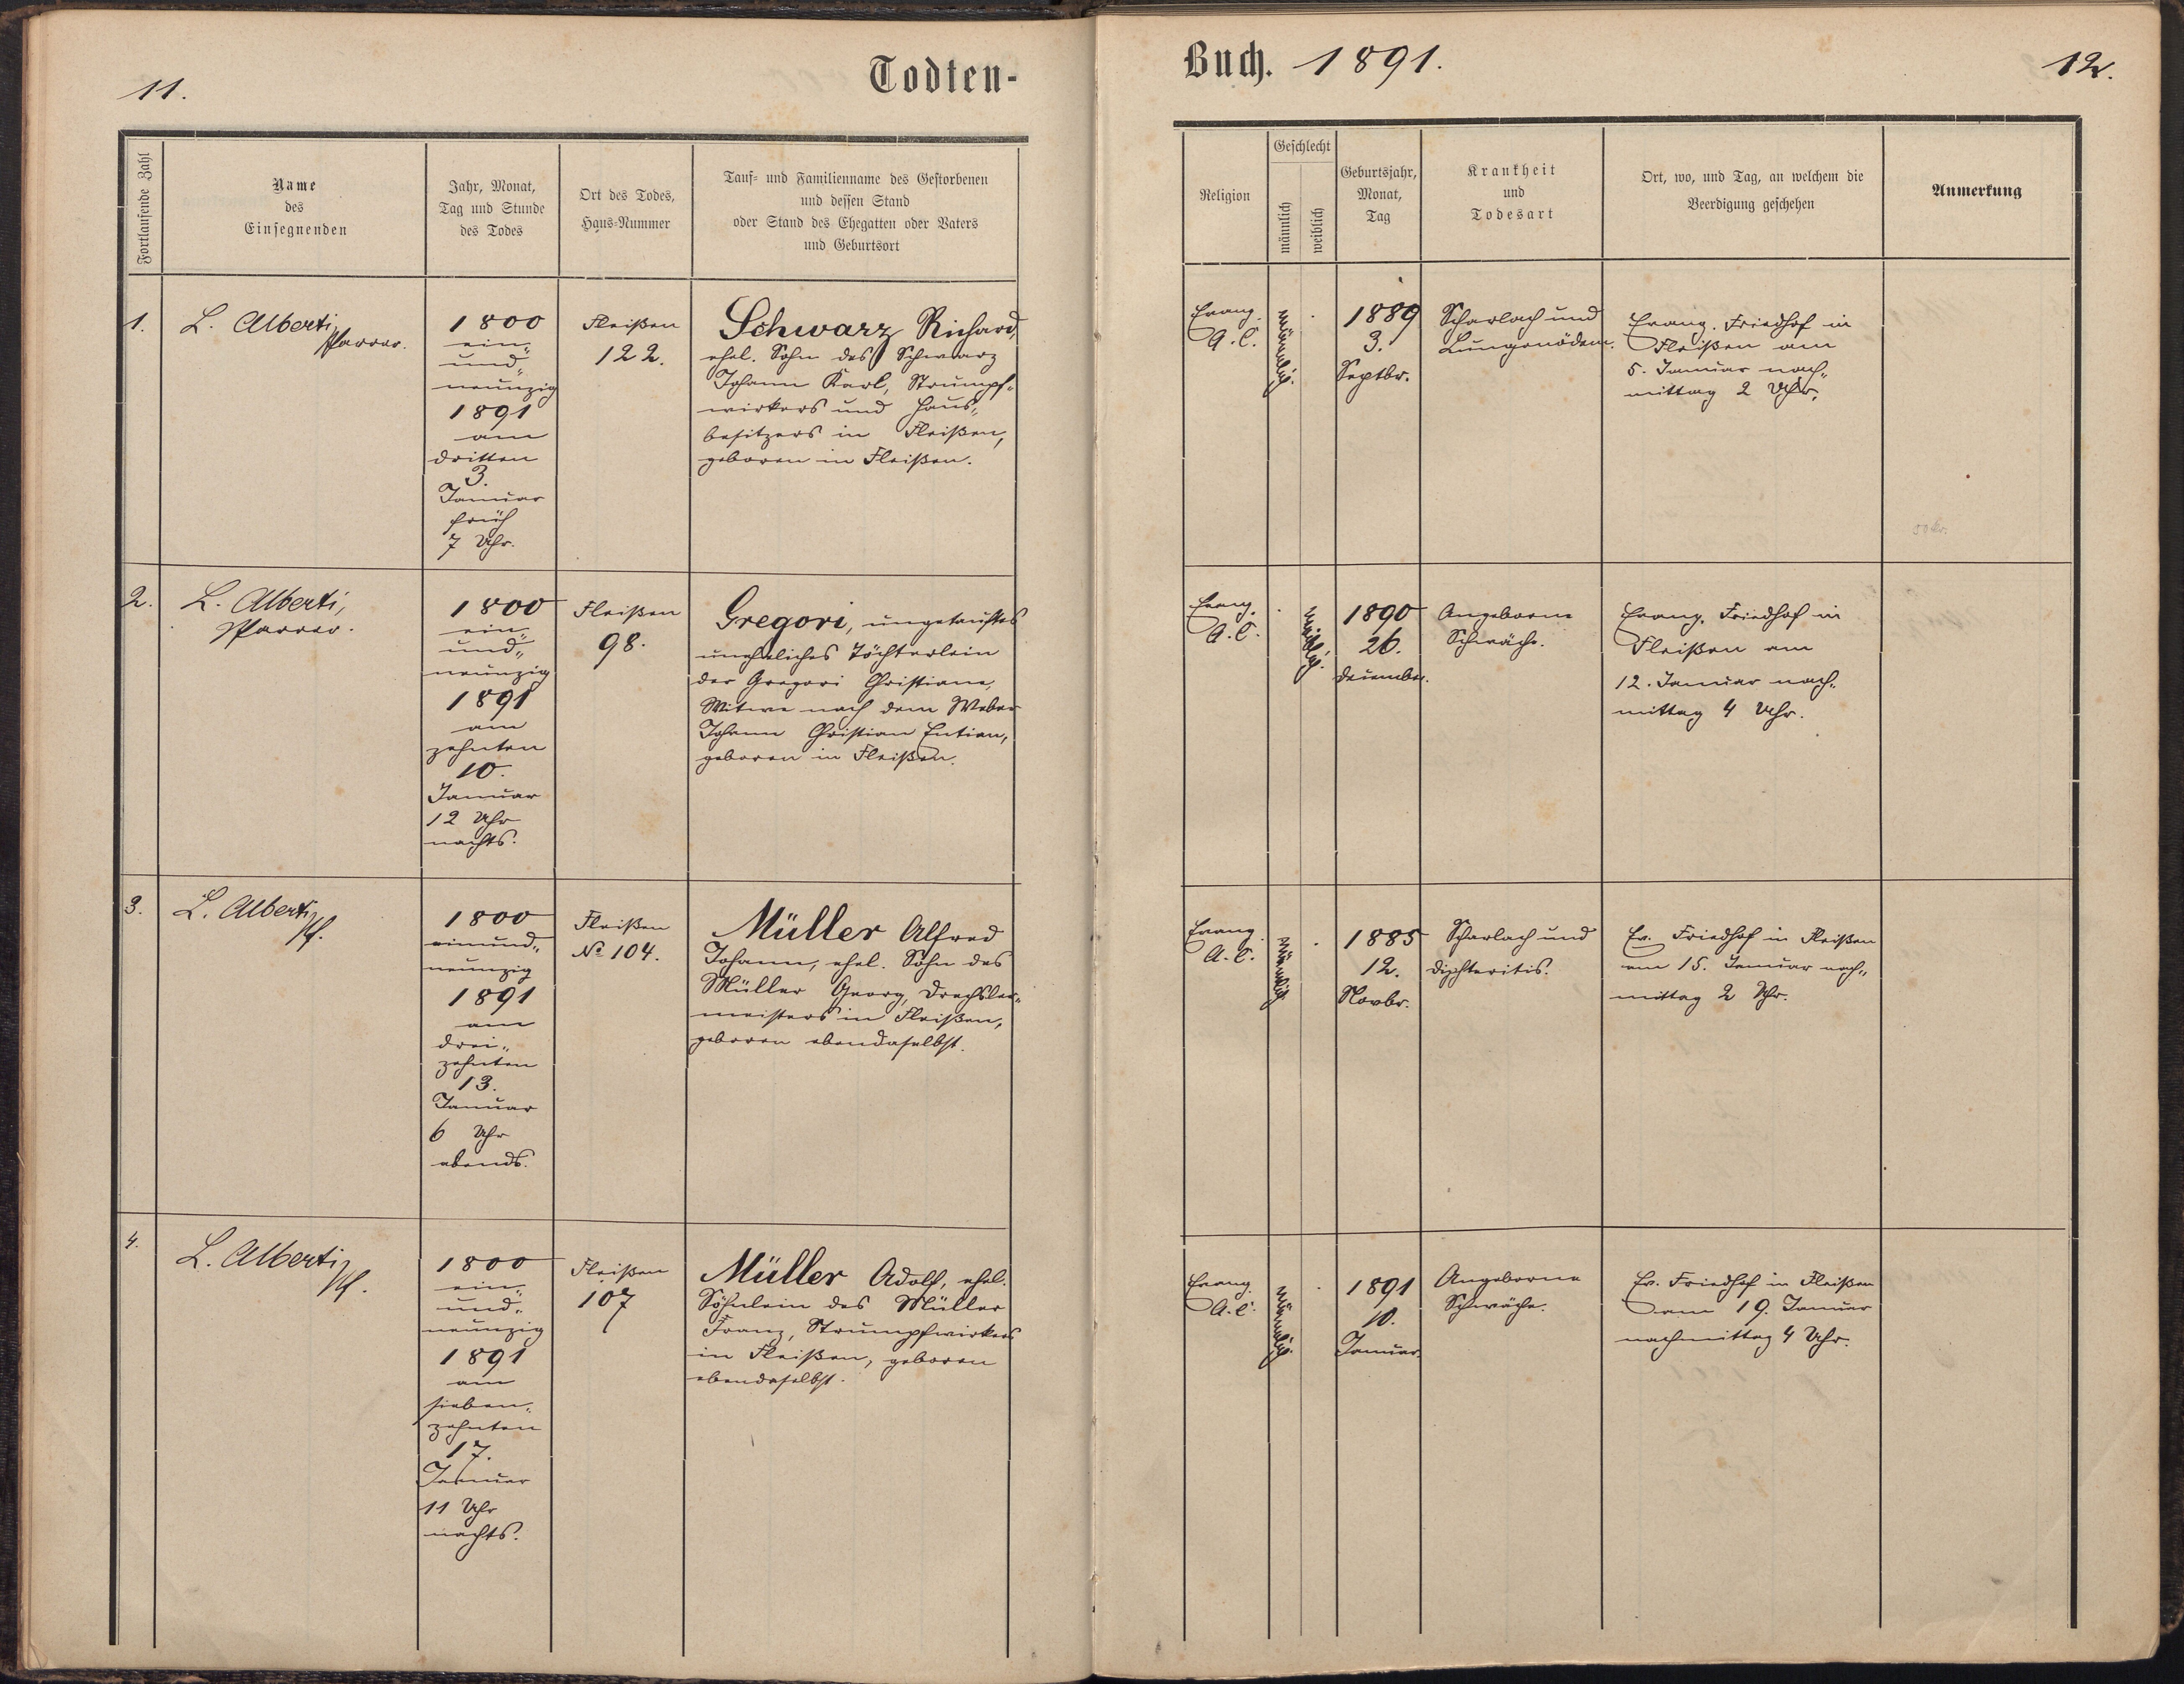 11.
Todten-
Fortlaufende Zahl
Name
des
Einsegnenden
Jahr, Monat,
Tag und Stunde
des Todes
Ort des Todes,
Haus-Nummer
Tauf- und Familienname des Gestorbenen
und dessen Stand
oder Stand des Ehegatten oder Vaters
und Geburtsort
1.
L. Alberti,
Pfarrer.
1800
ein„
und„
neunzig
1891
am
dritten
3.
Januar
früh
7 Uhr.
Fleißen
122.
Schwarz Richard,
ehel. Sohn des Schwarz
Johann Karl, Strumpf„
wirkers und Haus„
besitzers in Fleißen,
geboren in Fleißen.
2.
L. Alberti,
Pfarrer.
1800
ein„
und„
neunzig
1891
am
zehnten
10.
Januar
12 Uhr
nachts.
Fleißen
98.
Gregori, ungetauftes
uneheliches Töchterlein
der Gregori Christiane,
Witwe nach dem Weber
Johann Christian
geboren in Fleißen.
3.
L. Alberti,
Pf.
1800
einund„
neunzig
1891
am
drei„
zehnten
13.
Januar
6 Uhr
abends.
Fleißen
No 104.
Müller Alfred
Johann, ehel. Sohn des
Müller Georg, Drechsler„
meisters in Fleißen,
geboren ebendaselbst.
4.
L. Alberti,
Pf.
1800
ein„
und„
neunzig
1891
am
sieben„
zehnten
17.
Januar
11 Uhr
nachts.
Fleißen
107
Müller Adolf, ehel.
Söhnlein des Müller
Franz, Strumpfwirkers
in Fleißen, geboren
ebendaselbst.
Buch. 1891.
12.
Religion
Geschlecht
männlich
weiblich
Geburtsjahr,
Monat,
Tag
Krankheit
und
Todesart
Ort, wo, und Tag, an welchem die
Beerdigung geschehen
Anmerkung
Evang.
A. C.
männlich.
1889
3.
Septbr.
Scharlach und
Lungenödem.
Evang. Friedhof in
Fleißen am
5. Januar nach„
mittag 2 Uhr.
50 kr.
Evang.
A. C.
weiblich.
1890
26.
Dezember.
Angeborne
Schwäche.
Evang. Friedhof in
Fleißen am
12. Januar nach„
mittag 4 Uhr.
Evang.
A. C.
männlich
1885
12.
Novbr.
Scharlach und
Diphteritis.
Ev. Friedhof in Fleißen
am 15. Januar nach„
mittag 2 Uhr.
Evang.
A. C.
männlich.
1891
10.
Januar.
Angeborne
Schwäche.
Ev. Friedhof in Fleißen
am 19. Januar
nachmittag 4 Uhr.